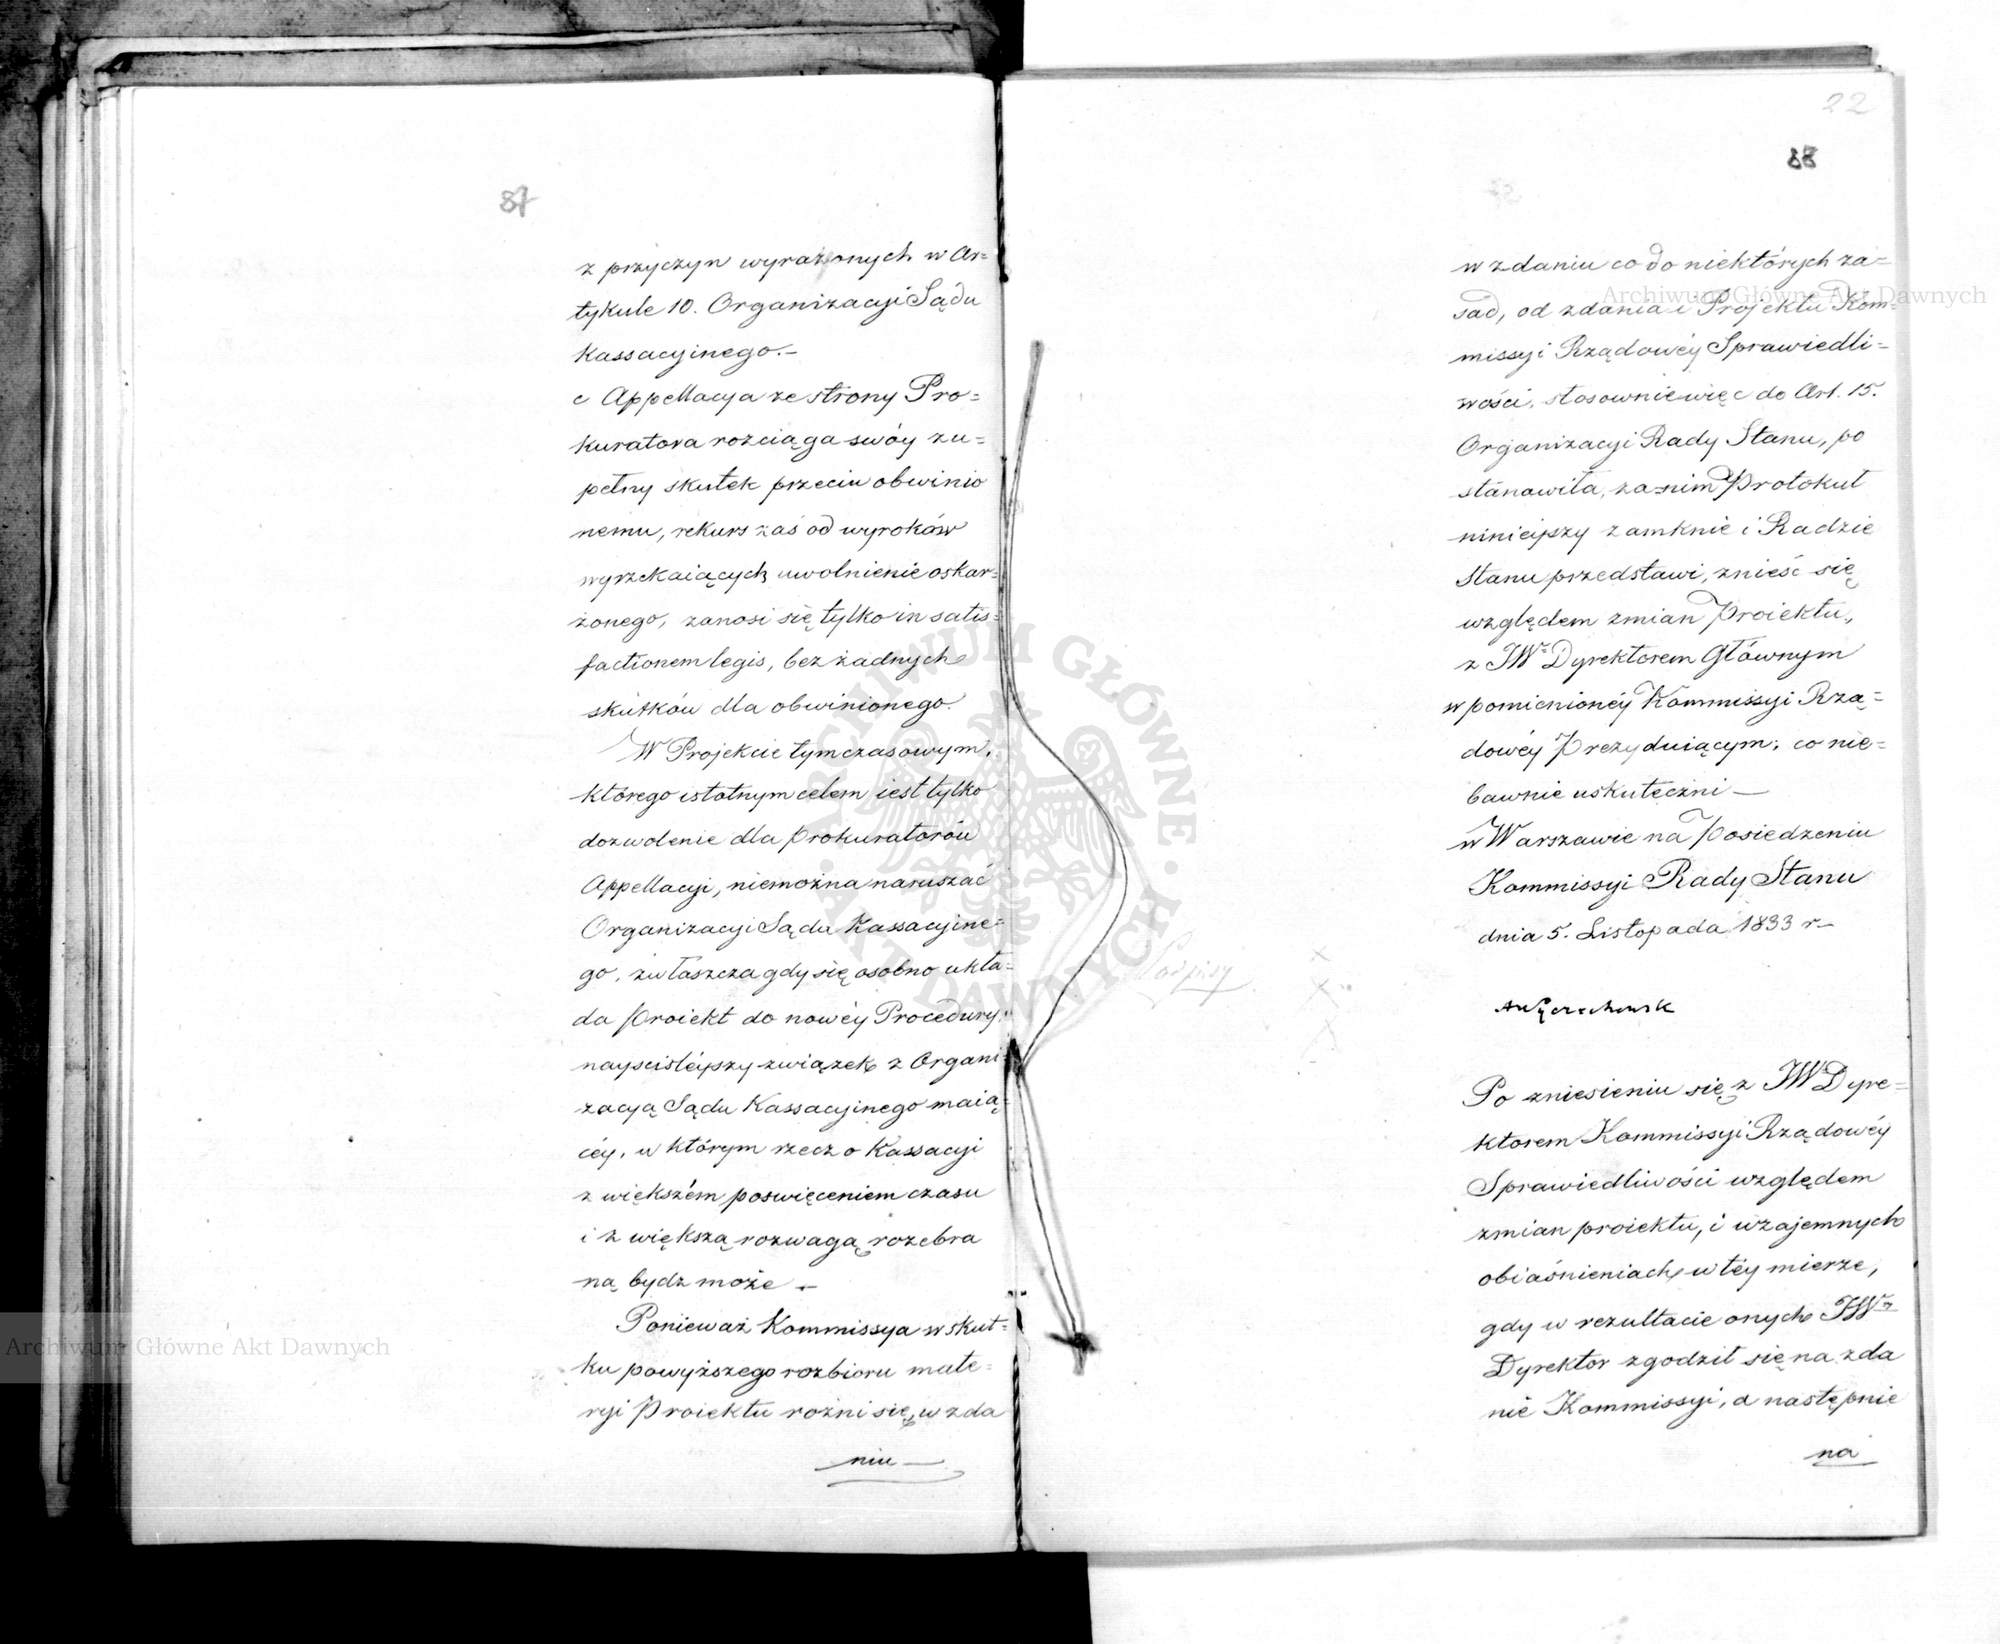 87
z przyczyn wyrażonych w Ar=
tykule 10. Organizacyi Sądu
Kassacyinego.–
c Appellacya ze strony Pro=
kuratora rozciąga swóy zu=
pełny skutek przeciw obwinio
nemu, rekurs zaś od wyroków
wyrzekaiących uwolnienie oskar=
żonego, zanosi się tylko in satis=
factionem legis, bez żadnych
skutków dla obwinionego.
W Projekcie tymczasowym,
którego istotnym celem iest tylko
dozwolenie dla Prokuratorów
Appellacyi, niemożna naruszać
Organizacyi Sądu Kassacyine=
go, zwłaszcza gdy się osobno ukła=
da Proiekt do nowéy Procedury,
nayscisléyszy związek z Organi=
zacyą Sądu Kassacyinego maią=
céy, w którym rzecz o Kassacyi
z większém poswięceniem czasu
i z większą rozwagą rozebra
ną bydz może –
Ponieważ Kommissya w skut=
ku powyższego rozbioru mate=
ryi Proiektu rożni się, w zda
niu –
22
88
w zdaniu co do niektórych za=
sad, od zdania i Projektu Kom=
missyi Rządowéy Sprawiedli=
wości, stosownie więc do Art. 15.
Organizacyi Rady Stanu, po
stanawiła, za nim Protokuł
ninieyszy zamknie i Radzie
Stanu przedstawi, znieść się
względem zmian Proiektu,
z JWr Dyrektorem Głównym
w pomienionéy Kommissyi Rzą=
dowéy Prezyduiącym, co nie=
bawnie uskuteczni –
w Warszawie na Posiedzeniu
Kommissyi Rady Stanu
dnia 5. Listopada 1833 r–
Po zniesieniu się z JW Dyre=
ktorem Kommissyi Rządowéy
Sprawiedliwości względem
zmian proiektu, i wzajemnych
obiaśnieniach w téy mierze,
gdy w rezultacie onych JWr
Dyrektor zgodził się na zda
nie Kommissyi, a następnie
na
Podpisy
Archiwum Główne Akt Dawnych
Archiwum Główne Akt Dawnych
ARCHIWUM GŁÓWNE
AKT DAWNYCH